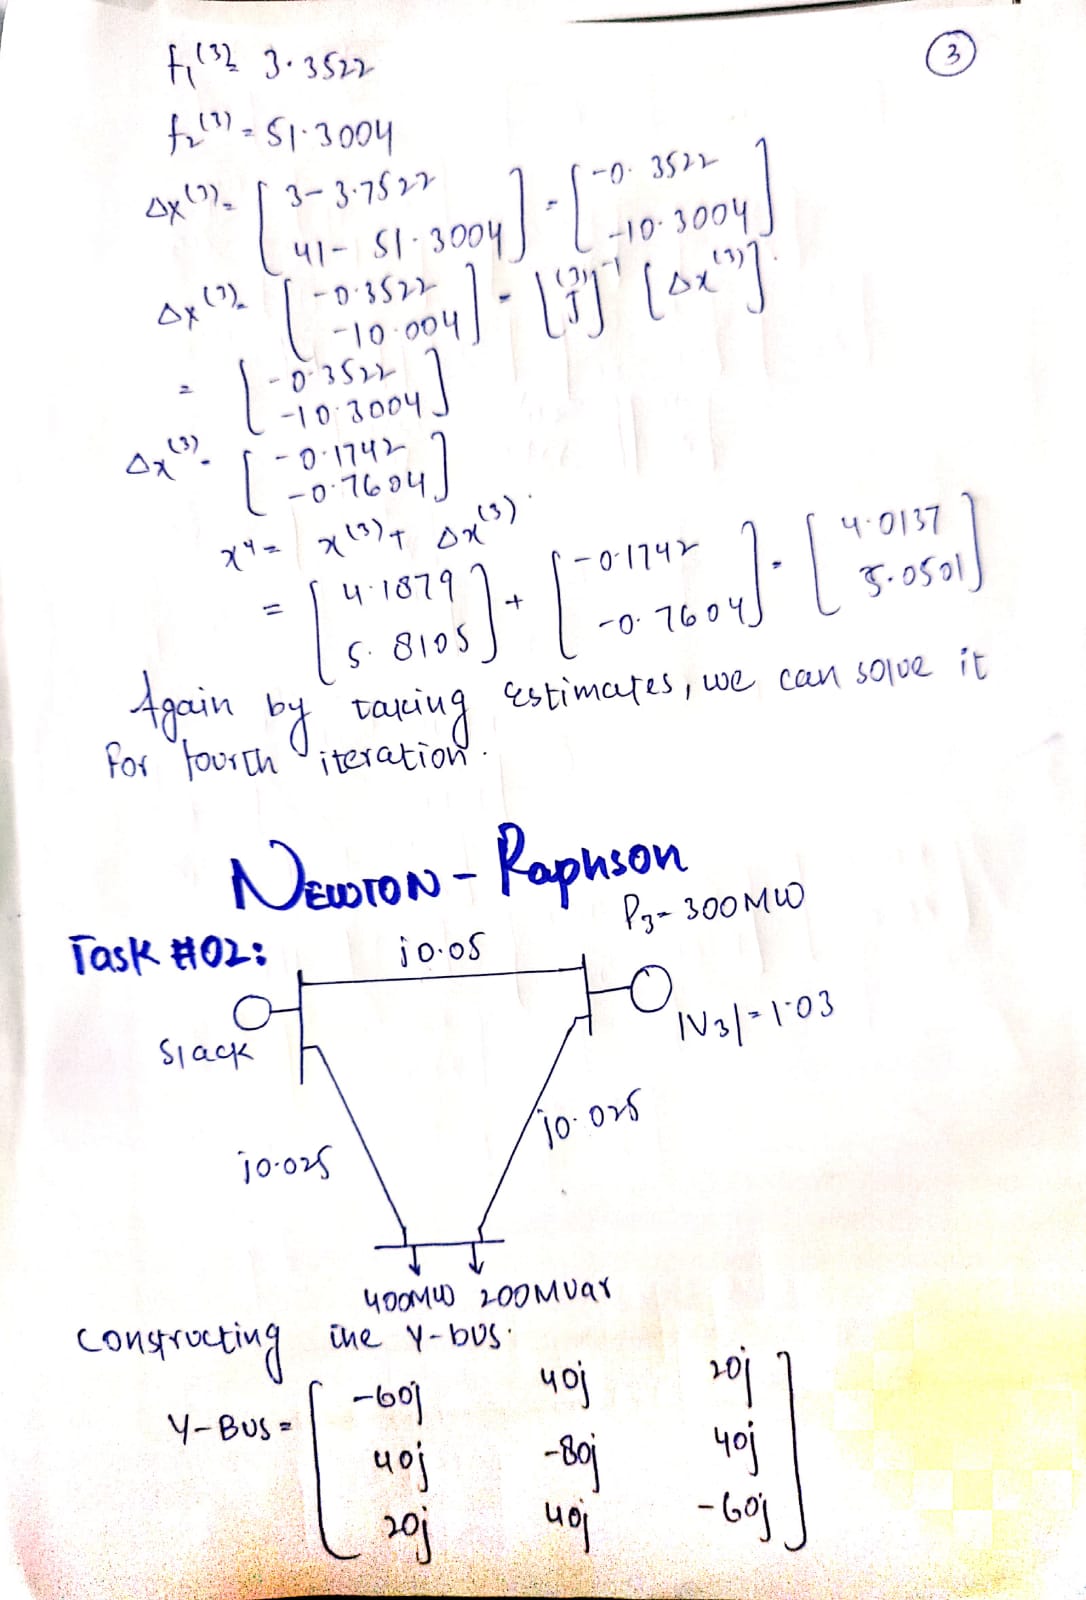 3
f₁⁽³⁾= 3.3522
f₂⁽³⁾ = 51.3004
Δx⁽³⁾= [ 3 - 3.7522 ] = [ -0.3522 ]
[ 41 - 51.3004 ] [ -10.3004 ]
Δx⁽³⁾= [ -0.3522 ] = [J⁽³⁾]⁻¹ [Δx⁽³⁾]
[ -10.004 ]
= [ -0.3522 ]
[ -10.3004 ]
Δx⁽³⁾= [ -0.1742 ]
[ -0.7604 ]
x⁴ = x⁽³⁾ + Δx⁽³⁾
= [ 4.1879 ] + [ -0.1742 ] = [ 4.0137 ]
[ 5.8105 ] [ -0.7604 ] [ 5.0501 ]
Again by taking estimates, we can solve it
for fourth iteration.
NEWTON - Raphson
P₃= 300MW
Task #02:
j0.05
|V₃| = 1.03
Slack
j0.025
j0.025
400MW 200MVar
Constructing the Y-bus.
Y-BUS = [ -60j 40j 20j ]
[ 40j -80j 40j ]
[ 20j 40j -60j ]